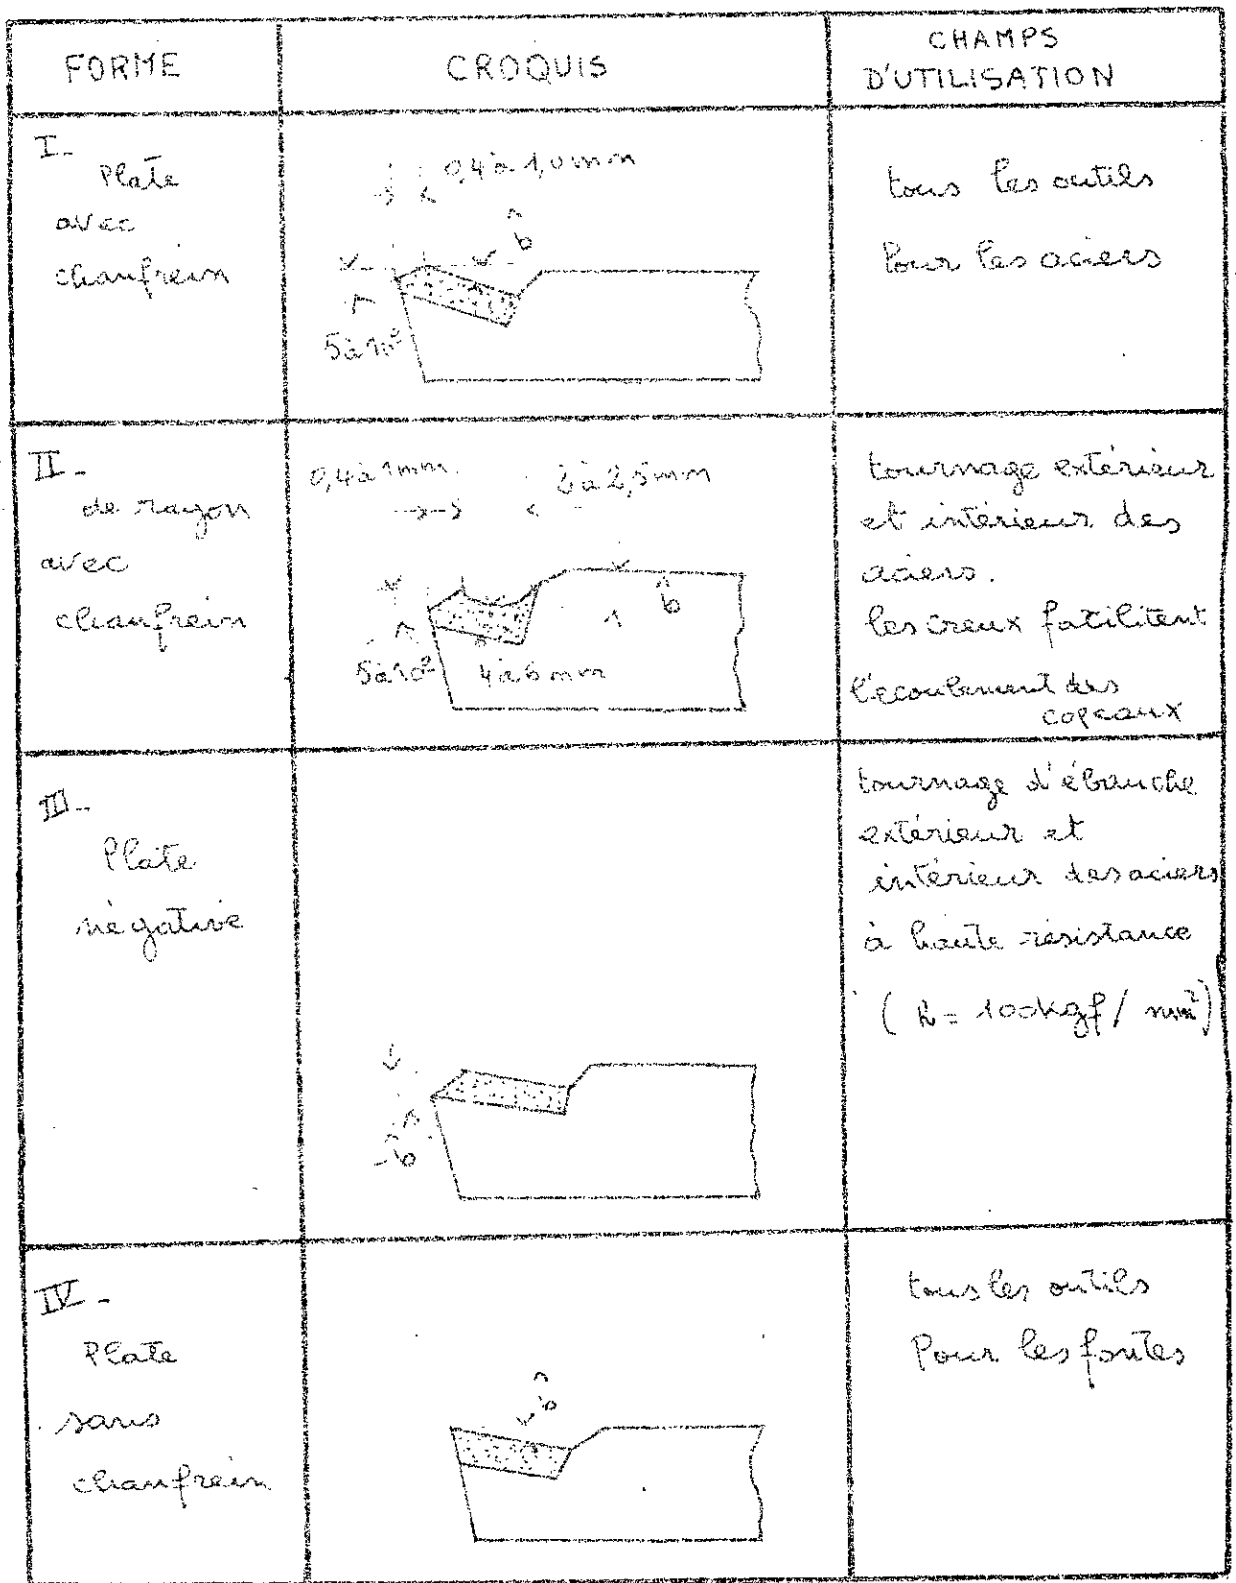 FORME
CROQUIS
CHAMPS
D'UTILISATION
I-
Plate
avec
chanfrein
0,4 à 1,0 mm
b
5 à 10°
tous les outils
Pour les aciers
II-
de rayon
avec
chanfrein
0,4 à 1 mm
2 à 2,5 mm
b
1
5 à 10°
4 à 6 mm
tournage extérieur
et intérieur des
aciers.
les creux facilitent
l'ecoulement des
copeaux
III-
Plate
négative
-b
tournage d'ébauche
extérieur et
intérieur des aciers
à haute résistance
( R = 100kgf / mm²)
IV-
Plate
sans
chanfrein
b
tous les outils
Pour les fontes